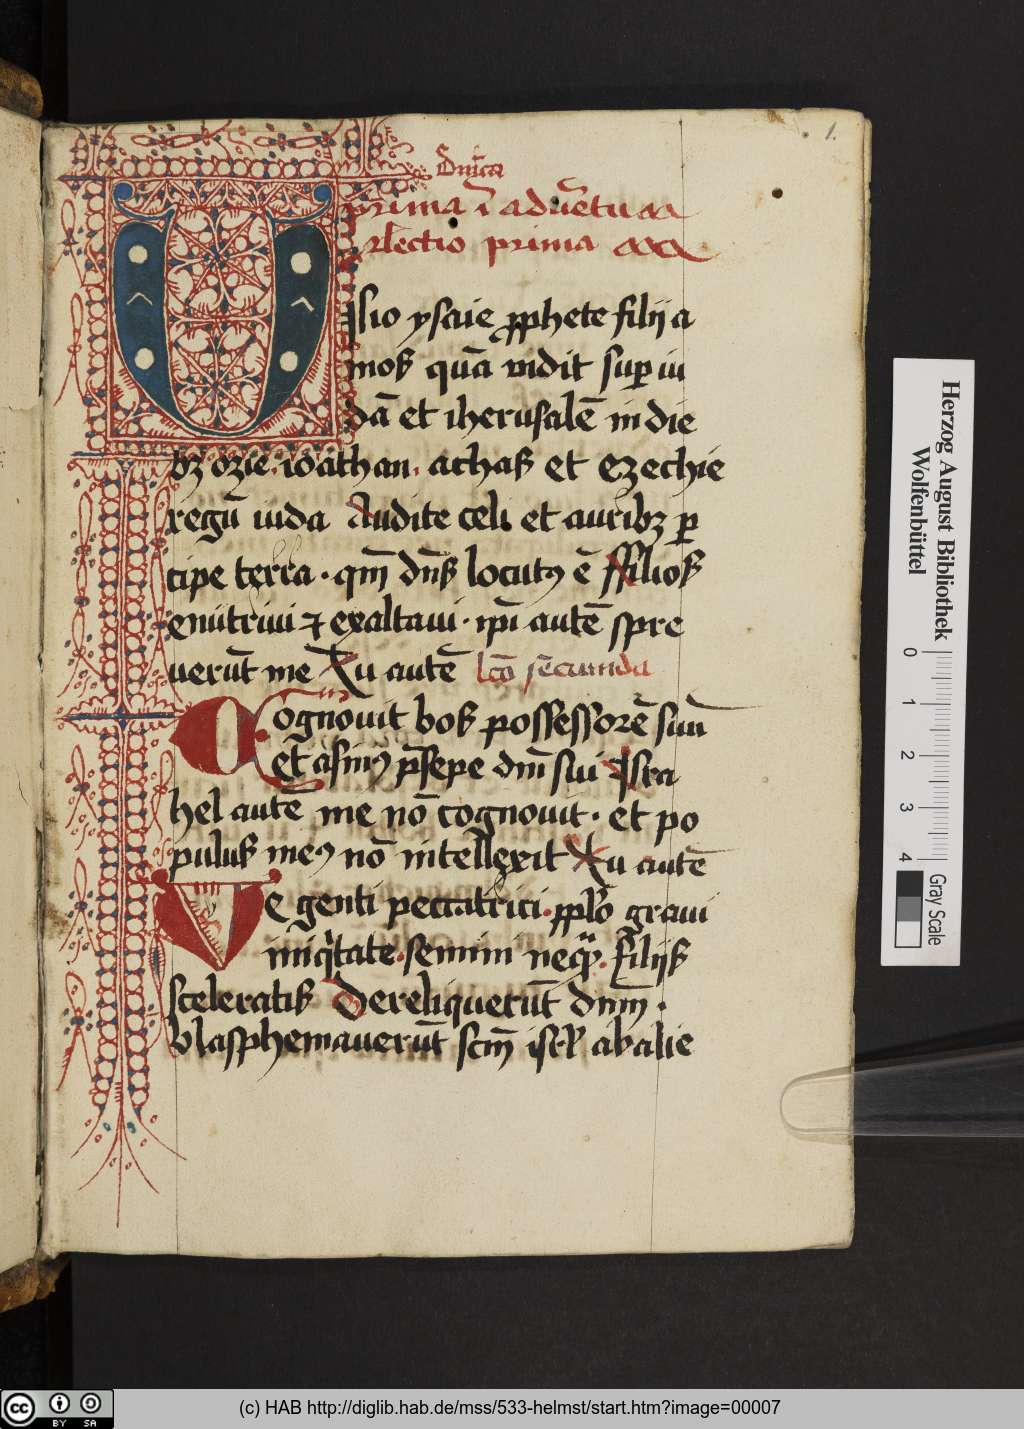 1.
Dn̄ica
prima ī aduētu
lectio prima
Visio ysaie ꝓphete filij a
mos quā vidit suꝑ iu
dā et iherusalē in die
bꝫ ozie · ioathan · achas et ezechie
regū iuda Audite celi et auribꝫ ꝑ
cipe terra · qm̄ dn̄s locutꝰ ē ffilios
enutriui ⁊ exaltaui · ip̄i autē spre
uerūt me Tu autē lcō sēcunda
Cognouit bos possessorē suū
et asinꝰ p̄sepe dn̄i sui Isra
hel autē me nō cognouit · et po
pulus meꝰ nō intellexit Tu autē
Ve genti peccatrici · ꝓplō graui
iniqͥtate · semini neqᷓ · filijs
sceleratis Dereliquerūt dn̄m ·
blasphemauerūt scm̄ isrl̄ abalie
Herzog August Bibliothek
Wolfenbüttel
0 1 2 3 4
Gray Scale
cc BY SA
(c) HAB http://diglib.hab.de/mss/533-helmst/start.htm?image=00007